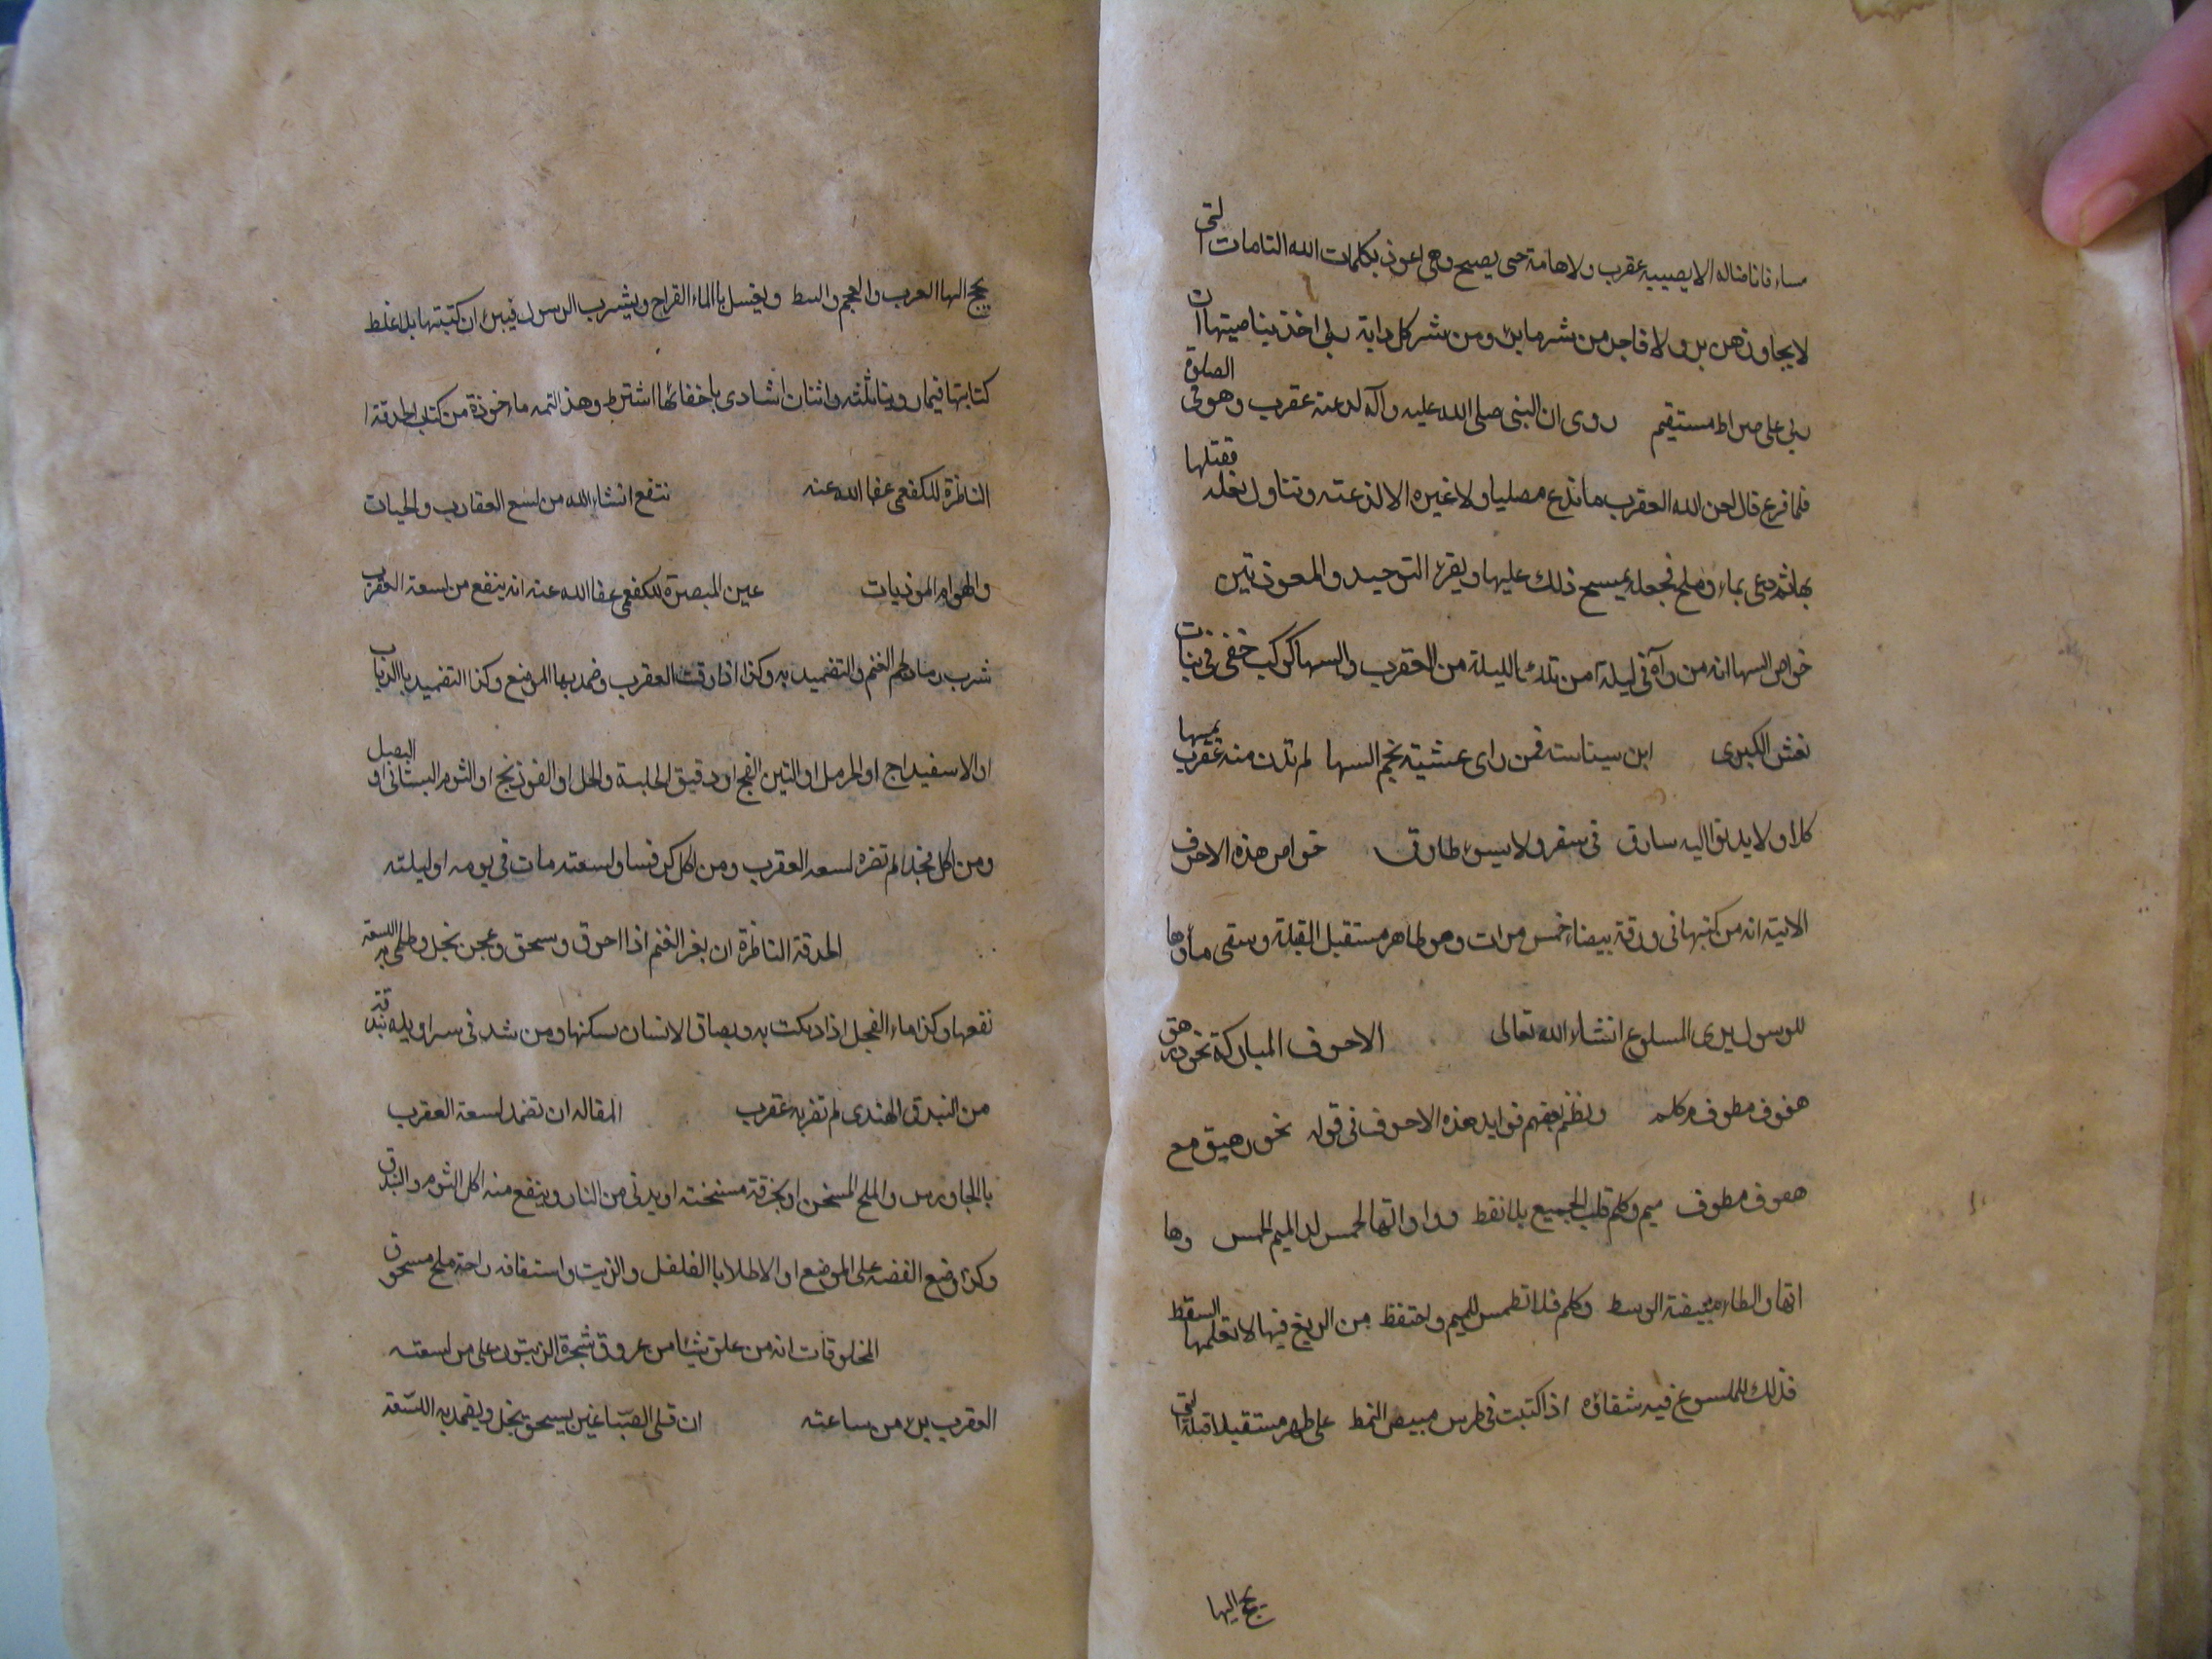 مساء فانا ضامن له الا يصيبه عقرب ولا هامة حتى يصبح وهى اعوذ بكلمات الله التامات التى
لا يجاوزهن بر ولا فاجر من شر ما برء ومن شر كل دابة ربى اخذ بناصيتها ان
ربى على صراط مستقيم روى ان النبى صلى الله عليه وآله لدعته عقرب وهو فى الصلوة
فلما فرغ قال لعن الله العقرب ما تدع مصليا ولا غيره الا لذعته وتناول نعله فقتلها
بها ثم دعى بماء وملح فجعل يمسح ذلك عليها ويقرء التوحيد والمعوذتين
خواص السها انه من رآه فى ليلة امن تلك الليلة من العقرب والسها كوكب خفى فى بنات
نعش الكبرى ابن سينا فمن راى عشية نجم السها لم تدن منه عقرب يمسها
كلا ولا يدنوا اليه سارق فى سفر ولا بسوء طارق خواص هذه الاحرف
الاتية انه من كتبها فى ورقة بيضاء خمس مرات وهو طاهر مستقبل القبلة وسقى ماؤها
للرسول يرى المسلوع انشاء الله تعالى الاحرف المباركة نحورهق
هفوف مطوف وكلم ونظم بعضهم فوايد هذه الاحرف فى قوله نحور هيق مع
هفوف مطوف ميم وكلم قلب الجميع بلا نقط وواواتها الخمس لدا لميم الخمس وها
اتها والطاء مبيضة الوسط وكلم فلا تطمس لميم واحتفظ من الزيغ فيها لا تعلمها السقط
فذلك للملسوع فيه شفاؤه اذا كتبت فى طرس مبيض النمط على طهر مستقبل قبلة التى
يحج اليها
يحج اليها العرب والعجم والبط ويغسل باالماء القراح ويشرب الرسول فيبرئ ان كتبتها بلا غلط
كتابتها فيما روينا ثلثه واثنان انشادى باخفائها اشترط وهذا التمه ماءخوذة من كتاب الحدقة ا
الناظرة للكفعمى عفا الله عنه نتفع انشاء الله من لسع العقارب والحيات
والهوام الموذيات عين المبصرة للكفعمى عفا الله عنه انه ينفع من لسعة العقرب
شرب رماد لحم الغنم والتضميد به وكذا اذا دقت العقرب وضمد بها الموضع وكذا التضميد باالذباب
او الاسفيداج او الحرمل او التين الفج او دقيق الحلبة والخل او الفوذنج او الثوم البستانى او البصل
ومن اكل فجلا لم تضره لسعه العقرب ومن اكل كرفسا ولسعته مات فى يومه او ليلته
الحدقة الناظرة ان بعر الغنم اذا احرق وسحق وعجن بخل وطلى به اللسعة
نفعها وكذا ماء الفجل اذا دلكت به وبصاق الانسان يسكنها ومن شد فى سراويله بندقة
من البندق الهندى لم تقربه عقرب المقاله ان تضمد لسعة العقرب
باالجاورس والملح المسخن او بخرقة مسخنته او يدنى من النار وينفع منه اكل الثوم والبندق
وكذا وضع الفضه على الموضع او الاطلا باالفلفل والزيت واستفافه راحة ملح مسحوق
المخلوقات انه من علق شيئا من عروق شجرة الزيتون على من لسعته
العقرب برء من ساعته ان قلى الصباغين يسحق بخل ويضمد به اللسعه